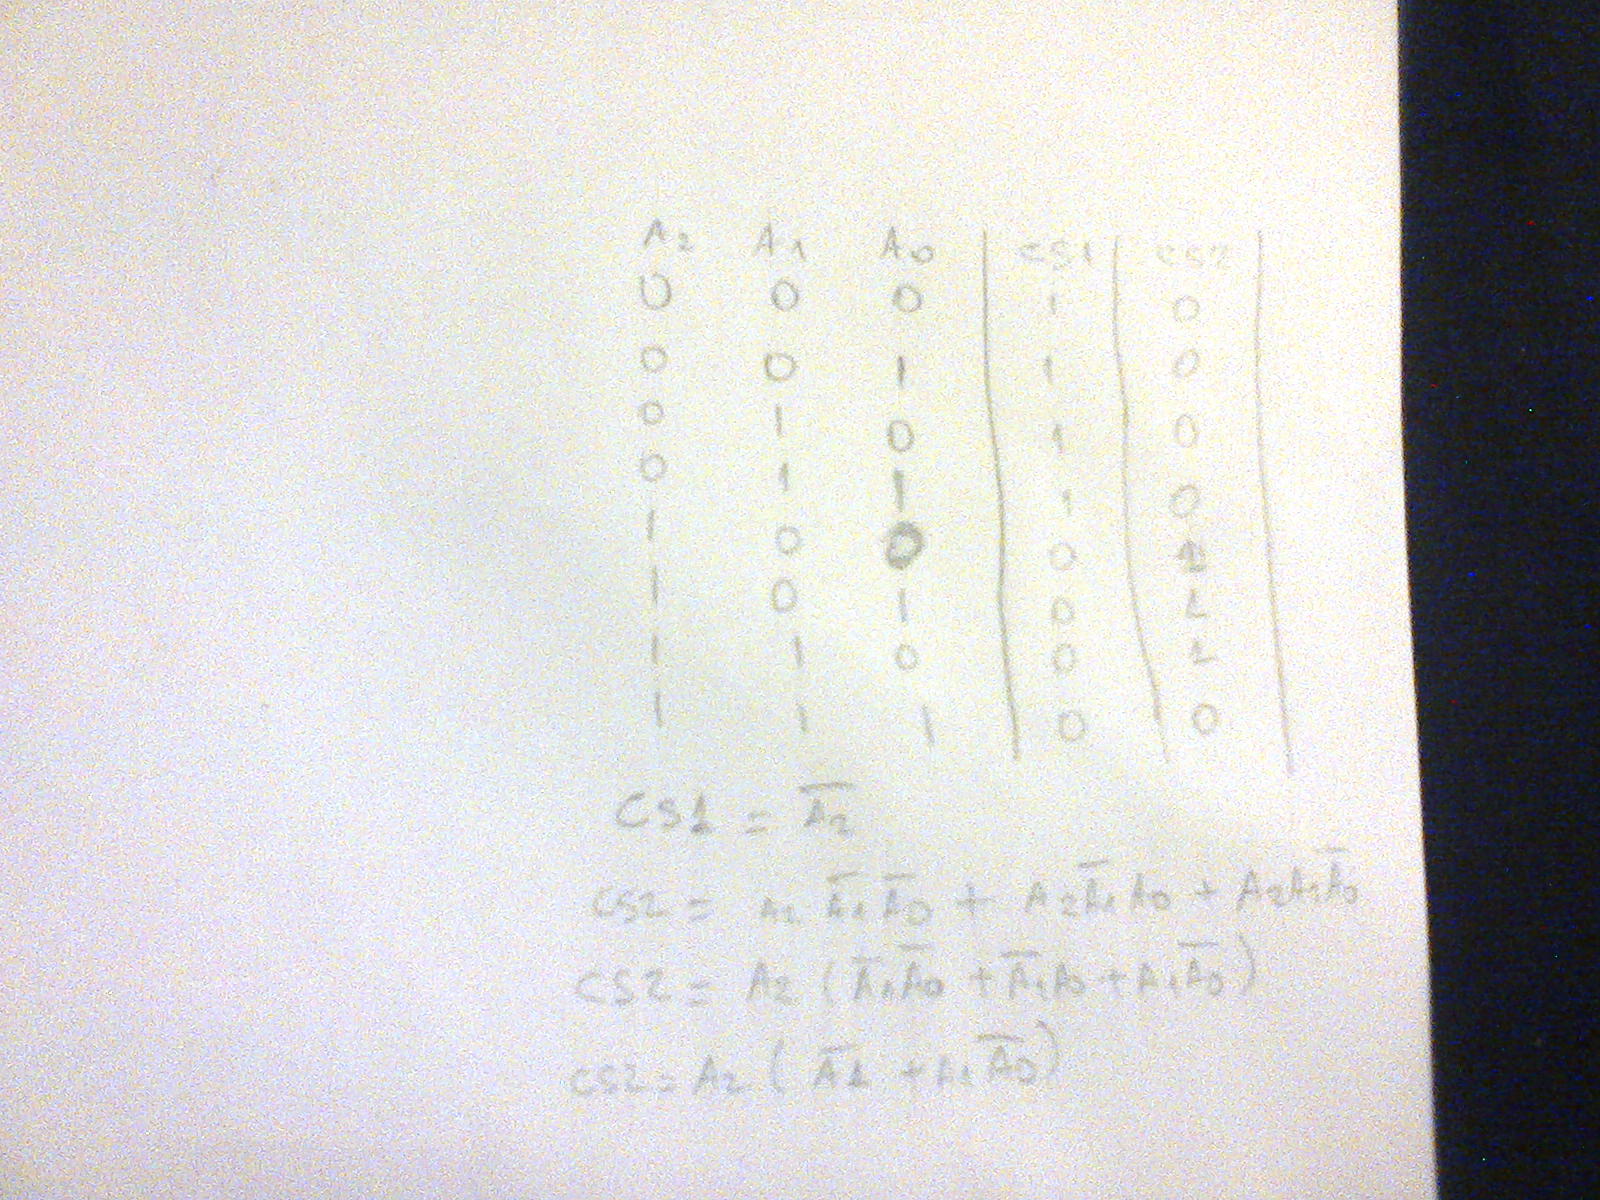 A2 A1 A0 CS1 CS2
0 0 0 1 0
0 0 1 1 0
0 1 0 1 0
0 1 1 1 0
1 0 0 0 1
1 0 1 0 1
1 1 0 0 1
1 1 1 0 0
CS1 = A̅2
CS2 = A2 A̅1 A̅0 + A2 A̅1 A0 + A2 A1 A̅0
CS2 = A2 (A̅1 A̅0 + A̅1 A0 + A1 A̅0)
CS2 = A2 (A̅1 + A1 A̅0)